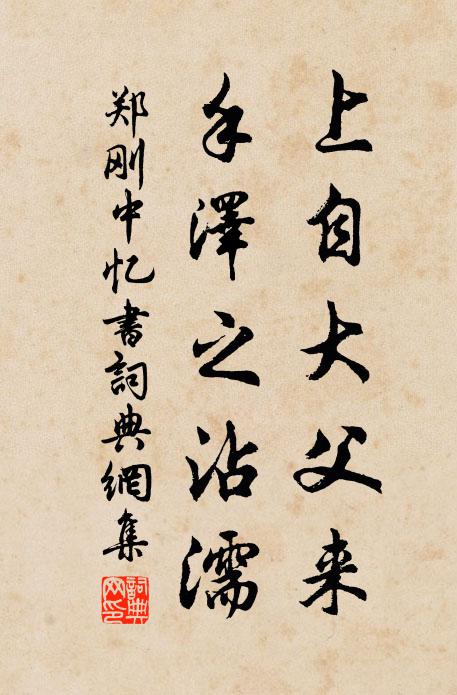 上自大父来
手澤之沾濡
郑刚中忆書詞典網集
詞典网印